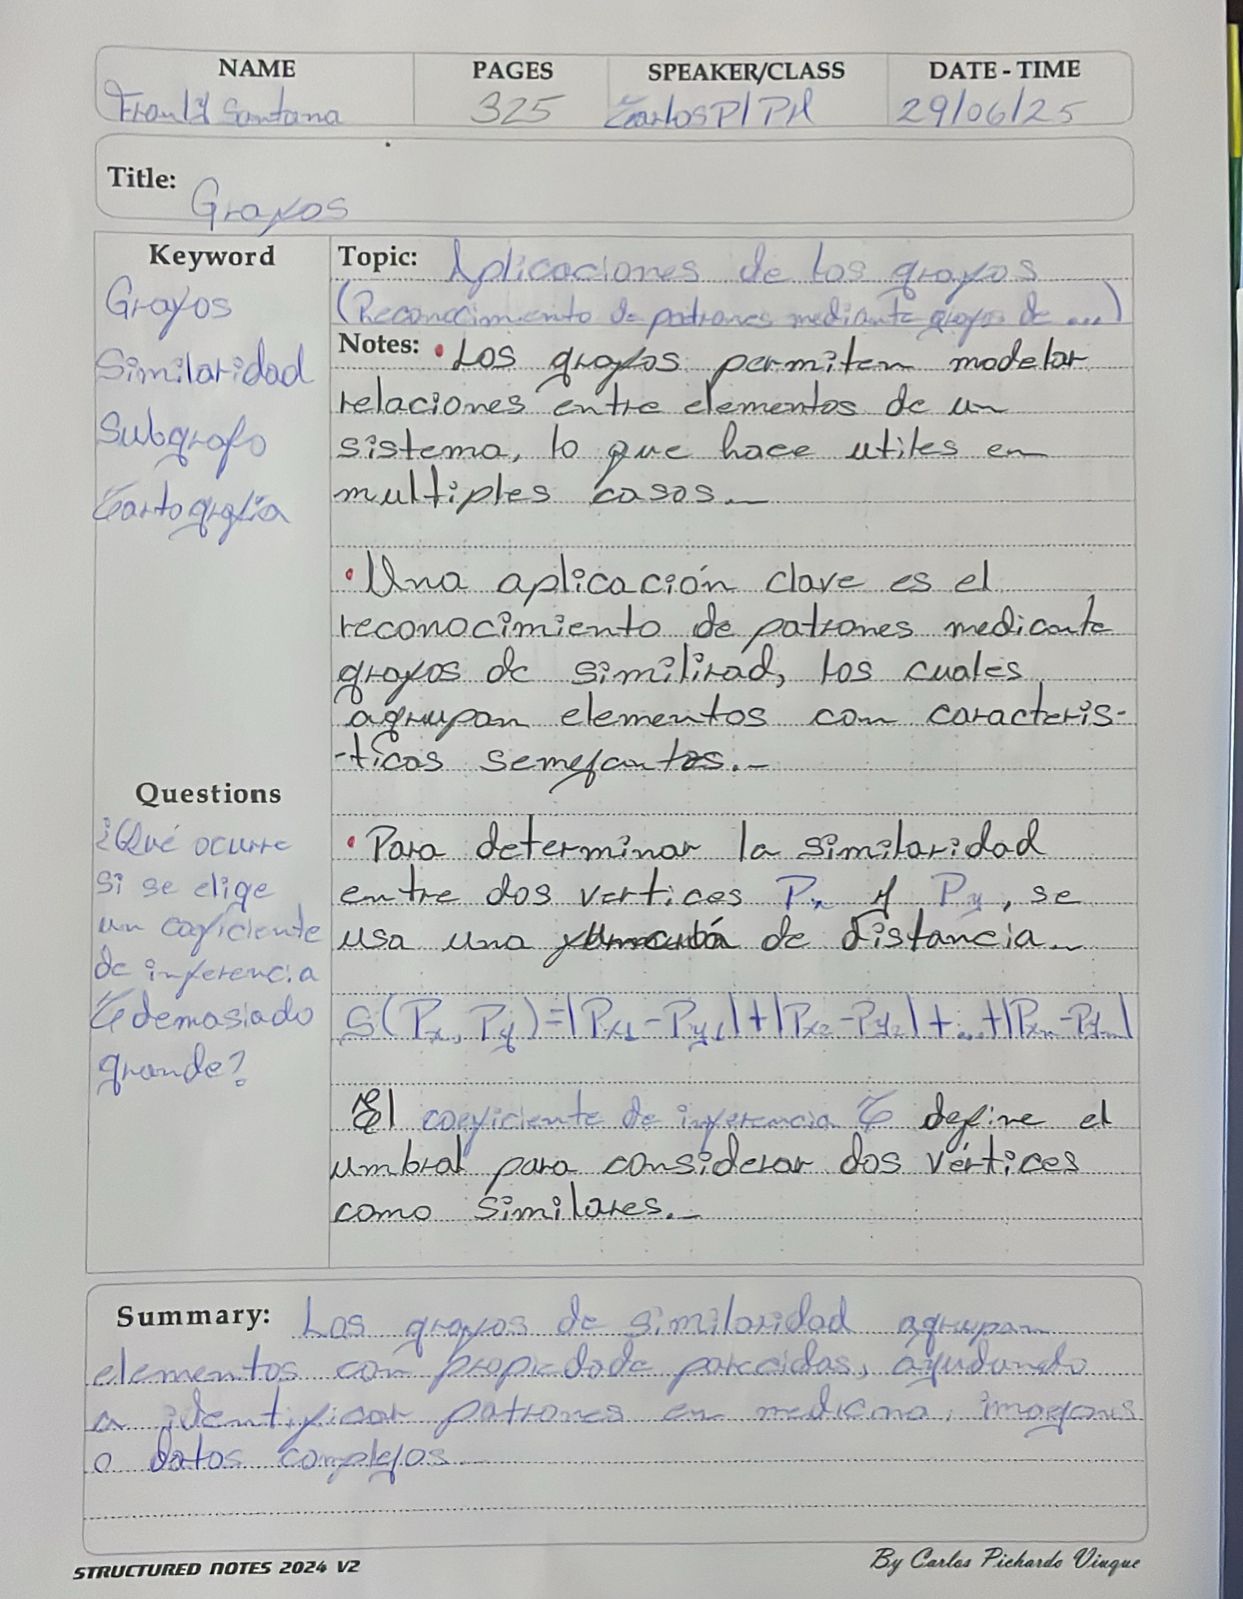 NAME PAGES SPEAKER/CLASS DATE - TIME
Santana 325 Carlos P/PH 29/06/25
Title: Grafos
Keyword
Grafos
Similaridad
Subgrafo
Cartografía
Topic: Aplicaciones de los grafos
(Reconocimiento de patrones mediante grafos de ...)
Notes: • Los grafos permiten modelar
relaciones entre elementos de un
sistema, lo que hace utiles en
multiples casos.
• Una aplicación clave es el
reconocimiento de patrones mediante
grafos de similirad, los cuales
agrupan elementos con caracteris-
-ticas semejantes.
• Para determinar la similaridad
entre dos vertices Px y Py, se
usa una de distancia.
S(Px, Py)=|Px1-Py1|+|Px2-Py2|+...+|Pxn-Pyn|
El coeficiente de inferencia C define el
umbral para considerar dos vértices
como similares.
Questions
¿Qué ocurre
si se elige
un coeficiente
de inferencia
C demasiado
grande?
Summary: Los grafos de similaridad agrupan
elementos con propiedade parecidas, ayudando
a identificar patrones en medicina, imagenes
o datos complejos
STRUCTURED NOTES 2024 V2
By Carlos Pichardo Viuque